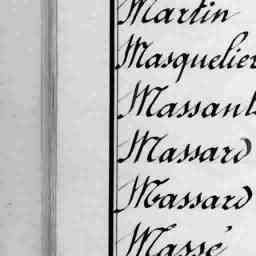 Martin
Masquelier
Massard
Massard
Massé